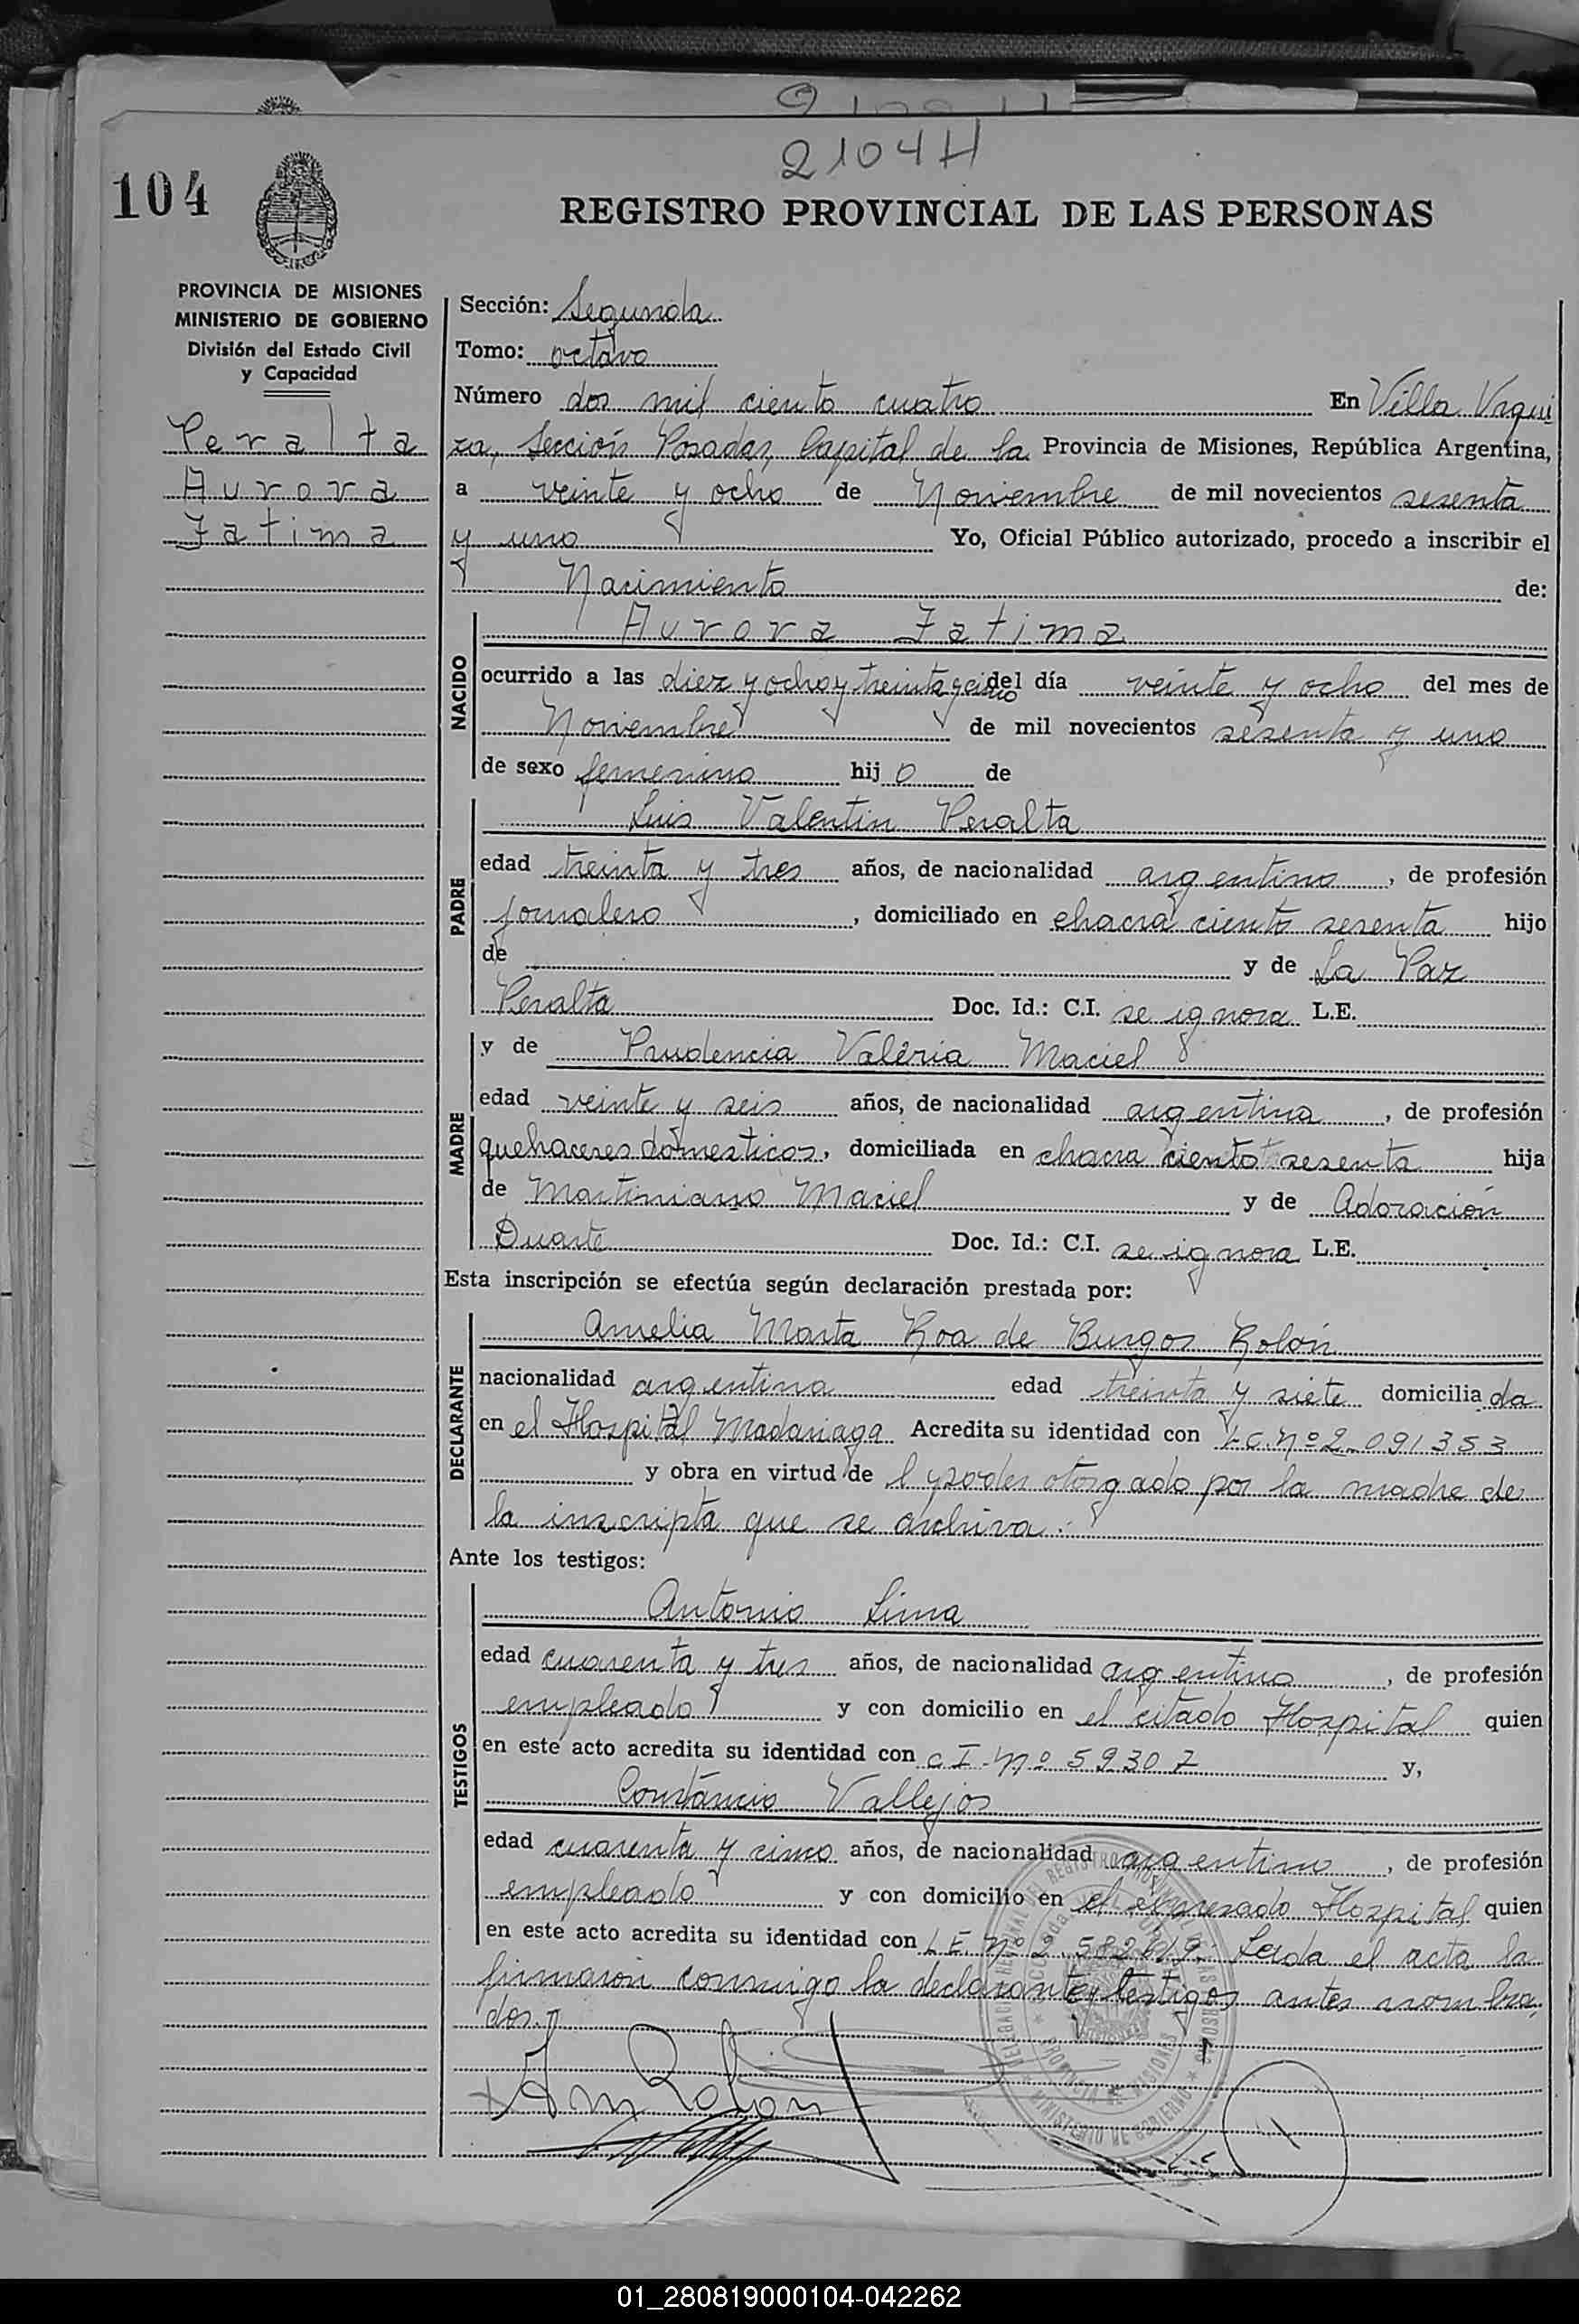 2104H
104
REGISTRO PROVINCIAL DE LAS PERSONAS
PROVINCIA DE MISIONES
MINISTERIO DE GOBIERNO
División del Estado Civil
y Capacidad
Peralta
Aurora
Fatima
Sección: Segunda
Tomo: octavo
Número dos mil ciento cuatro En Villa Urqui
za, Sección Posadas, Capital de la Provincia de Misiones, República Argentina,
a veinte y ocho de Noviembre de mil novecientos sesenta
y uno Yo, Oficial Público autorizado, procedo a inscribir el
Nacimiento de:
NACIDO
Aurora Fatima
ocurrido a las diez y ocho y treinta y cinco del día veinte y ocho del mes de
Noviembre de mil novecientos sesenta y uno
de sexo femenino hij o de
PADRE
Luis Valentin Peralta
edad treinta y tres años, de nacionalidad argentino, de profesión
jornalero, domiciliado en chacra ciento sesenta hijo
de y de La Paz
Peralta Doc. Id.: C.I. se ignora L.E.
MADRE
y de Prudencia Valeria Maciel
edad veinte y seis años, de nacionalidad argentina, de profesión
quehaceres domesticos, domiciliada en chacra ciento sesenta hija
de Martiniano Maciel y de Adoración
Duarte Doc. Id.: C.I. se ignora L.E.
Esta inscripción se efectúa según declaración prestada por:
DECLARANTE
Amelia Marta Roa de Burgos Rolón
nacionalidad argentina edad treinta y siete domicilia da
en el Hospital Madariaga Acredita su identidad con L.C. Nº 2.091353
y obra en virtud de l poder otorgado por la madre de
la inscripta que se archiva.
Ante los testigos:
TESTIGOS
Antonio Lima
edad cuarenta y tres años, de nacionalidad argentino, de profesión
empleado y con domicilio en el citado Hospital quien
en este acto acredita su identidad con C I. Nº 59307 y,
Constáncio Vallejos
edad cuarenta y cinco años, de nacionalidad argentino, de profesión
empleado y con domicilio en el expresado Hospital quien
en este acto acredita su identidad con L E. Nº Leida el acta la
firmaron conmigo la declarante y testigos antes nombra
dos.
01_280819000104-042262